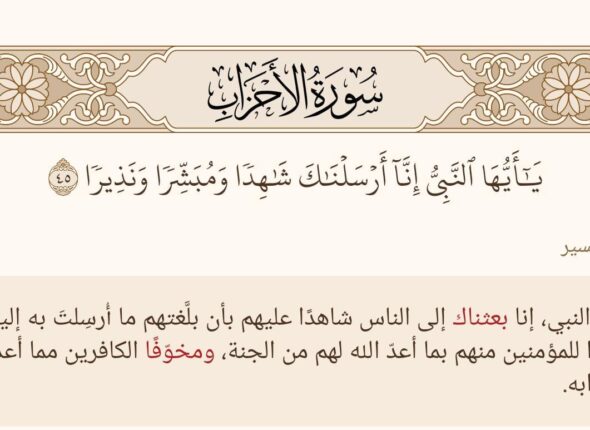 سُورَةُ الأَحْزَابِ
يَـٰٓأَيُّهَا ٱلنَّبِىُّ إِنَّآ أَرْسَلْنَـٰكَ شَـٰهِدًا وَمُبَشِّرًا وَنَذِيرًا ٤٥
النبي، إنا بعثناك إلى الناس شاهدًا عليهم بأن بلَّغتهم ما أُرسِلتَ به
للمؤمنين منهم بما أعدّ الله لهم من الجنة، ومخوّفًا الكافرين مما